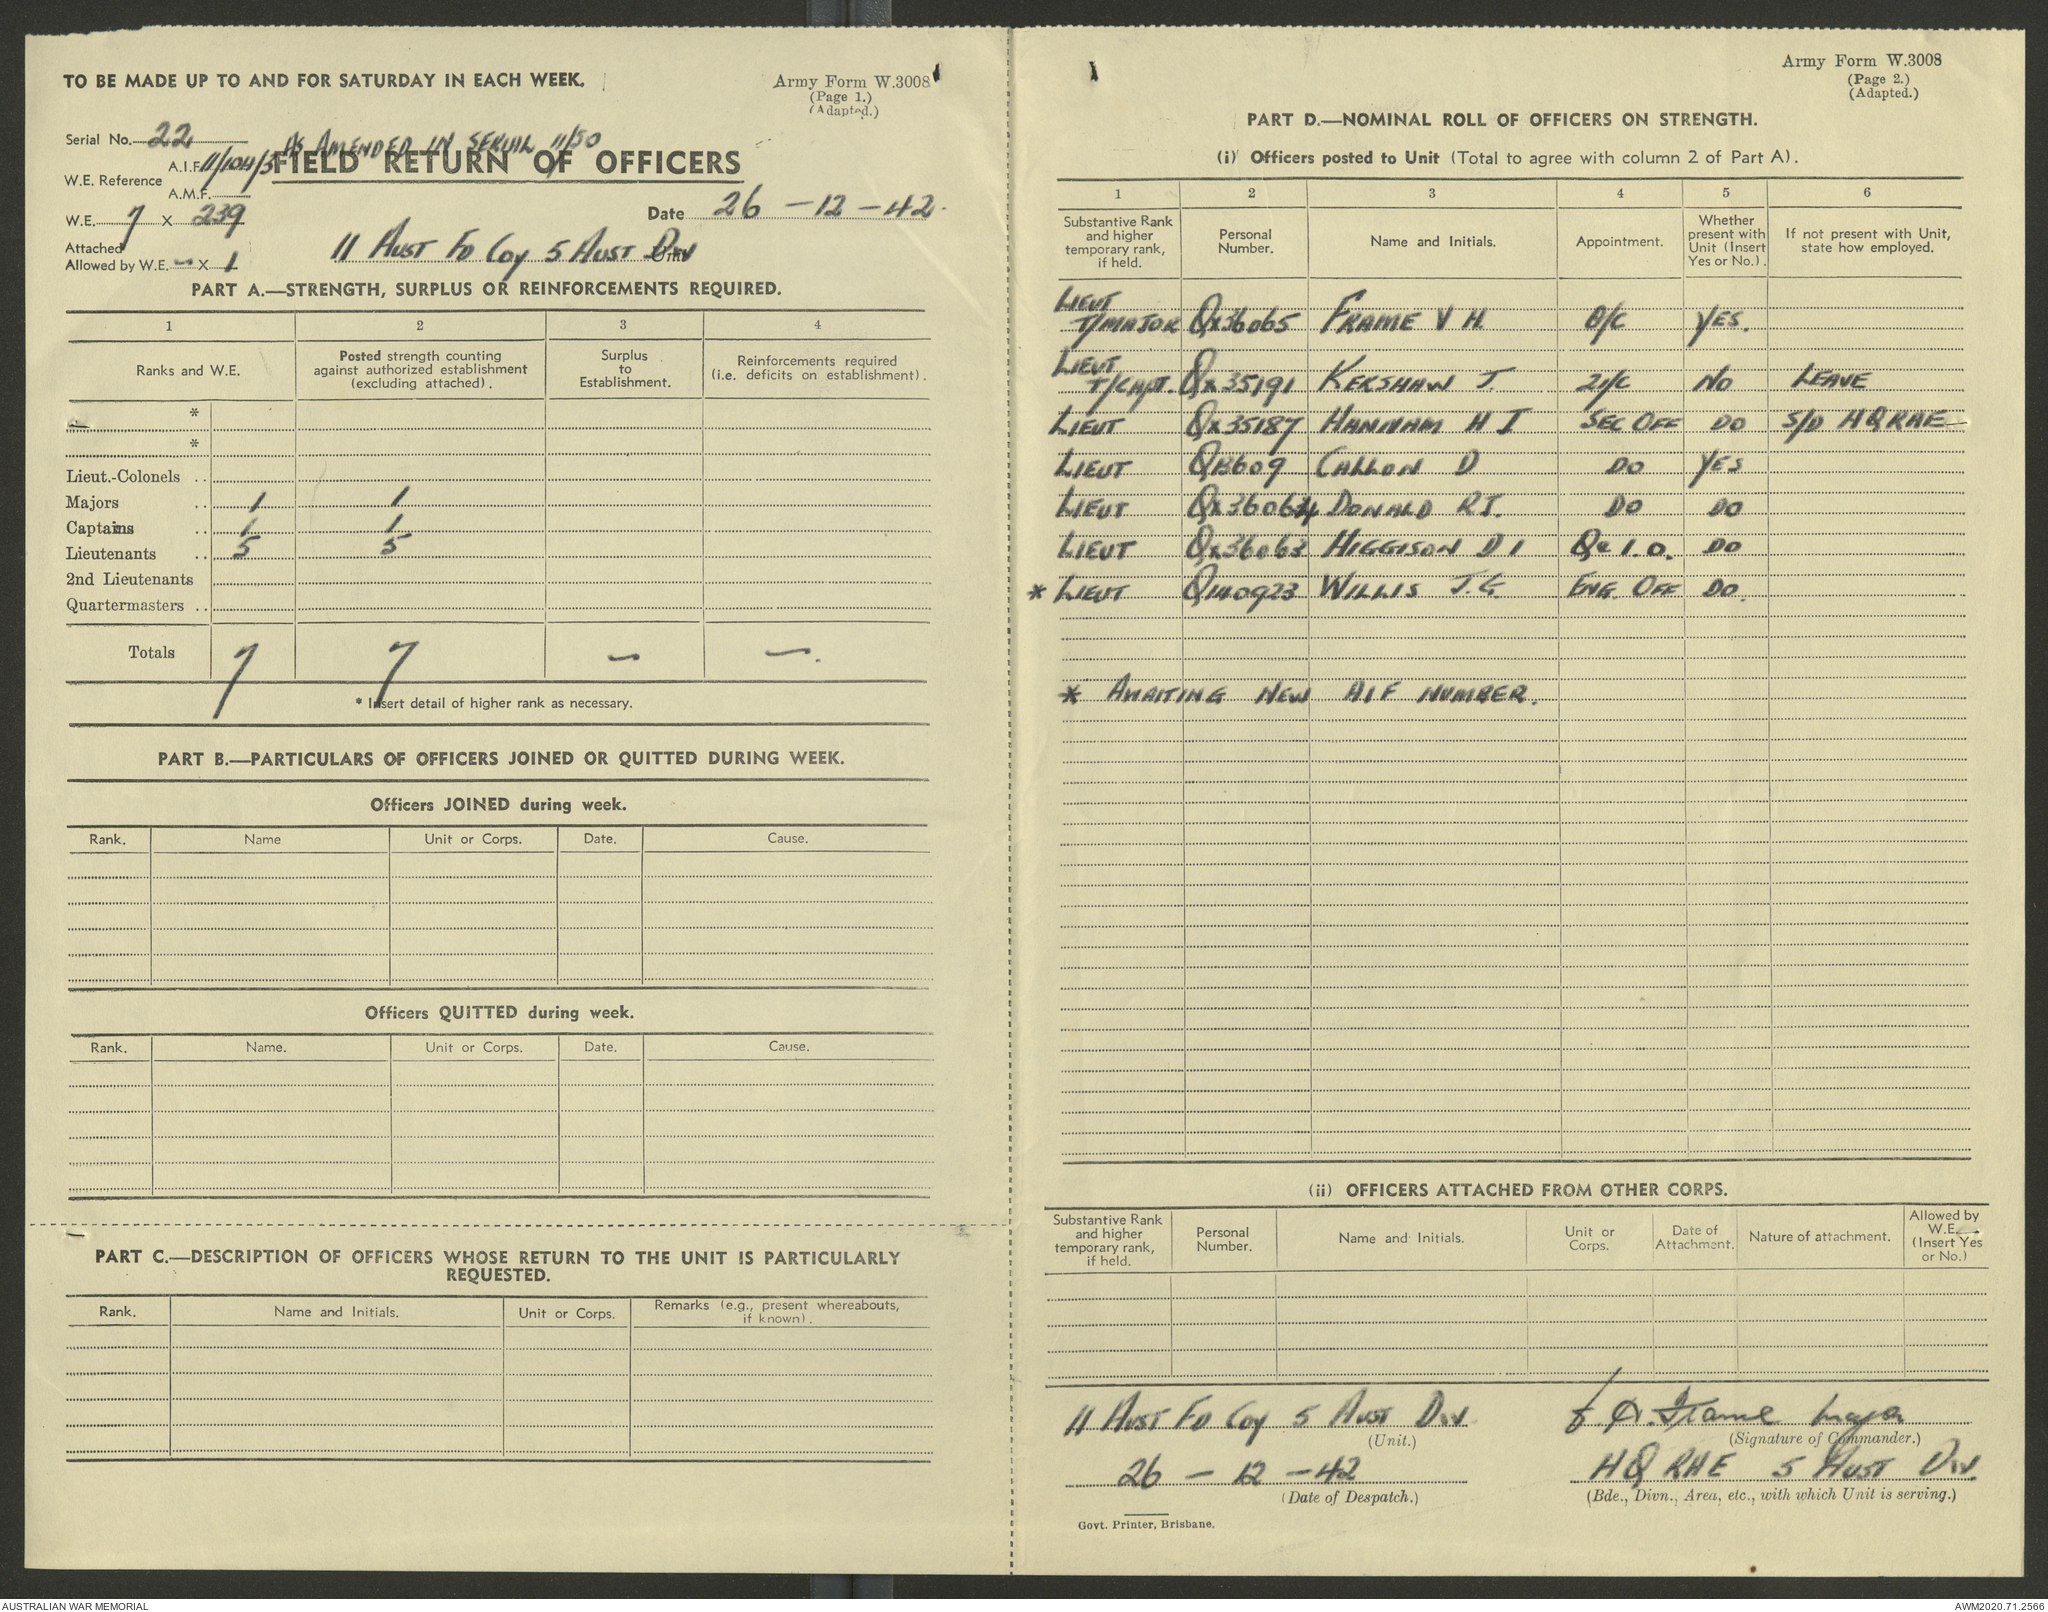 TO BE MADE UP TO AND FOR SATURDAY IN EACH WEEK.
Army Form W.3008
(Page 1.)
(Adapted.)
Serial No. 22
AS AMENDED IN SERIAL 11/50
W.E. Reference A.I.F. 11/104/3
A.M.F.
FIELD RETURN OF OFFICERS
W.E. 7 X 239
Date 26 - 12 - 42.
Attached
Allowed by W.E. - X 1
11 Aust Fd Coy 5 Aust Div
PART A.—STRENGTH, SURPLUS OR REINFORCEMENTS REQUIRED.
1 2 3 4
Ranks and W.E. Posted strength counting against authorized establishment (excluding attached). Surplus to Establishment. Reinforcements required (i.e. deficits on establishment).
*
*
Lieut.-Colonels ..
Majors .. 1 1
Captains .. 1 1
Lieutenants .. 5 5
2nd Lieutenants
Quartermasters ..
Totals 7 7 - -.
* Insert detail of higher rank as necessary.
PART B.—PARTICULARS OF OFFICERS JOINED OR QUITTED DURING WEEK.
Officers JOINED during week.
Rank. Name Unit or Corps. Date. Cause.
Officers QUITTED during week.
Rank. Name. Unit or Corps. Date. Cause.
PART C.—DESCRIPTION OF OFFICERS WHOSE RETURN TO THE UNIT IS PARTICULARLY
REQUESTED.
Rank. Name and Initials. Unit or Corps. Remarks (e.g., present whereabouts, if known).
Army Form W.3008
(Page 2.)
(Adapted.)
PART D.—NOMINAL ROLL OF OFFICERS ON STRENGTH.
(i) Officers posted to Unit (Total to agree with column 2 of Part A).
1 2 3 4 5 6
Substantive Rank and higher temporary rank, if held. Personal Number. Name and Initials. Appointment. Whether present with Unit (Insert Yes or No.). If not present with Unit, state how employed.
LIEUT
T/MAJOR QX36065 FRAME V H. O/C YES.
LIEUT
T/CAPT. QX35191 KERSHAW J. 2I/C NO LEAVE
LIEUT QX35187 HANNAM H J SEC OFF DO S/D HQ RAE
LIEUT QB609 CALLON D DO YES
LIEUT QX36064 DONALD R J. DO DO
LIEUT QX36063 HIGGISON D I DO
* LIEUT Q140923 WILLIS J.G. ENG. OFF DO.
* AWAITING NEW AIF NUMBER.
(ii) OFFICERS ATTACHED FROM OTHER CORPS.
Substantive Rank and higher temporary rank, if held. Personal Number. Name and Initials. Unit or Corps. Date of Attachment. Nature of attachment. Allowed by W.E. (Insert Yes or No.)
11 Aust Fd Coy 5 Aust Div. Frame Major
(Unit.) (Signature of Commander.)
26 - 12 - 42 HQ RAE 5 Aust Div.
(Date of Despatch.) (Bde., Divn., Area, etc., with which Unit is serving.)
Govt. Printer, Brisbane.
AUSTRALIAN WAR MEMORIAL
AWM2020.71.2566